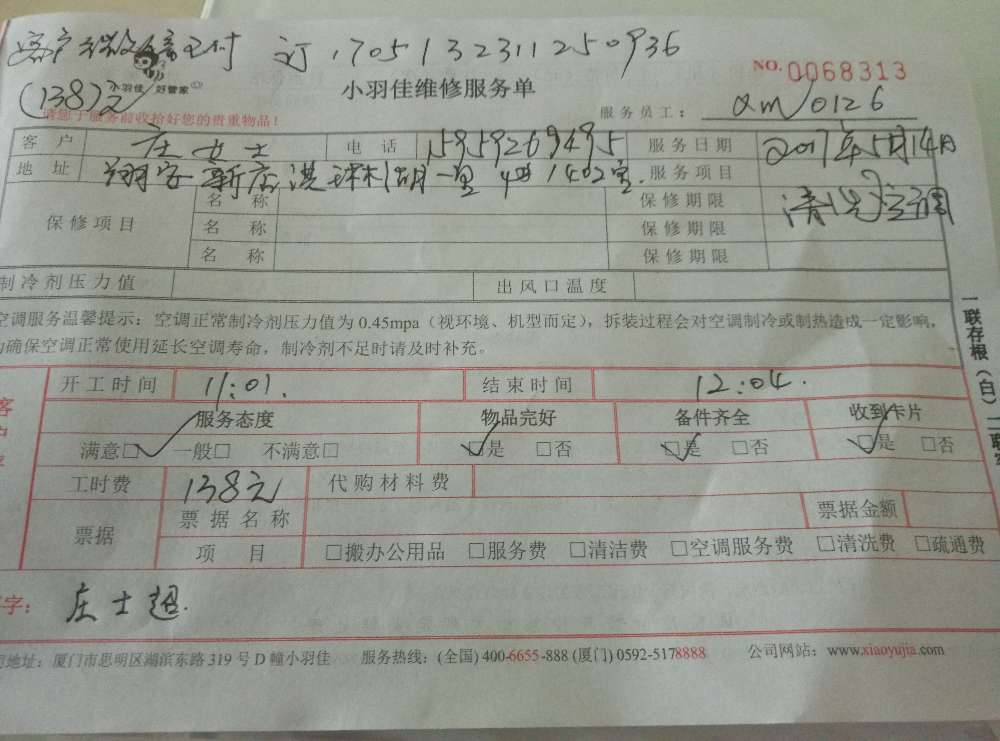 客户微信支付 订 1705132311250936
(138)元 小羽佳 好管家
小羽佳维修服务单
NO.0068313
请您于服务前收拾好您的贵重物品!
服务员工: xm/0126
客户 庄女士 电话 15959269495 服务日期 2017年5月14日
地址 翔安新店洪琳湖一里 1402室. 服务项目 清洗空调
保修项目 名称 保修期限
名称 保修期限
名称 保修期限
制冷剂压力值 出风口温度
空调服务温馨提示:空调正常制冷剂压力值为0.45mpa(视环境、机型而定),拆装过程会对空调制冷或制热造成一定影响,
为确保空调正常使用延长空调寿命,制冷剂不足时请及时补充。
一联存根(白)二联客
开工时间 11:01. 结束时间 12:04.
服务态度 物品完好 备件齐全 收到卡片
满意□ 一般□ 不满意□ □是 □否 □是 □否 □是 □否
工时费 138元 代购材料费
票据 票据名称 票据金额
项目 □搬办公用品 □服务费 □清洁费 □空调服务费 □清洗费 □疏通费
客户
字: 庄士超.
司地址:厦门市思明区湖滨东路319号D幢小羽佳 服务热线:(全国)400-6655-888(厦门)0592-5178888 公司网站:www.xiaoyujia.com